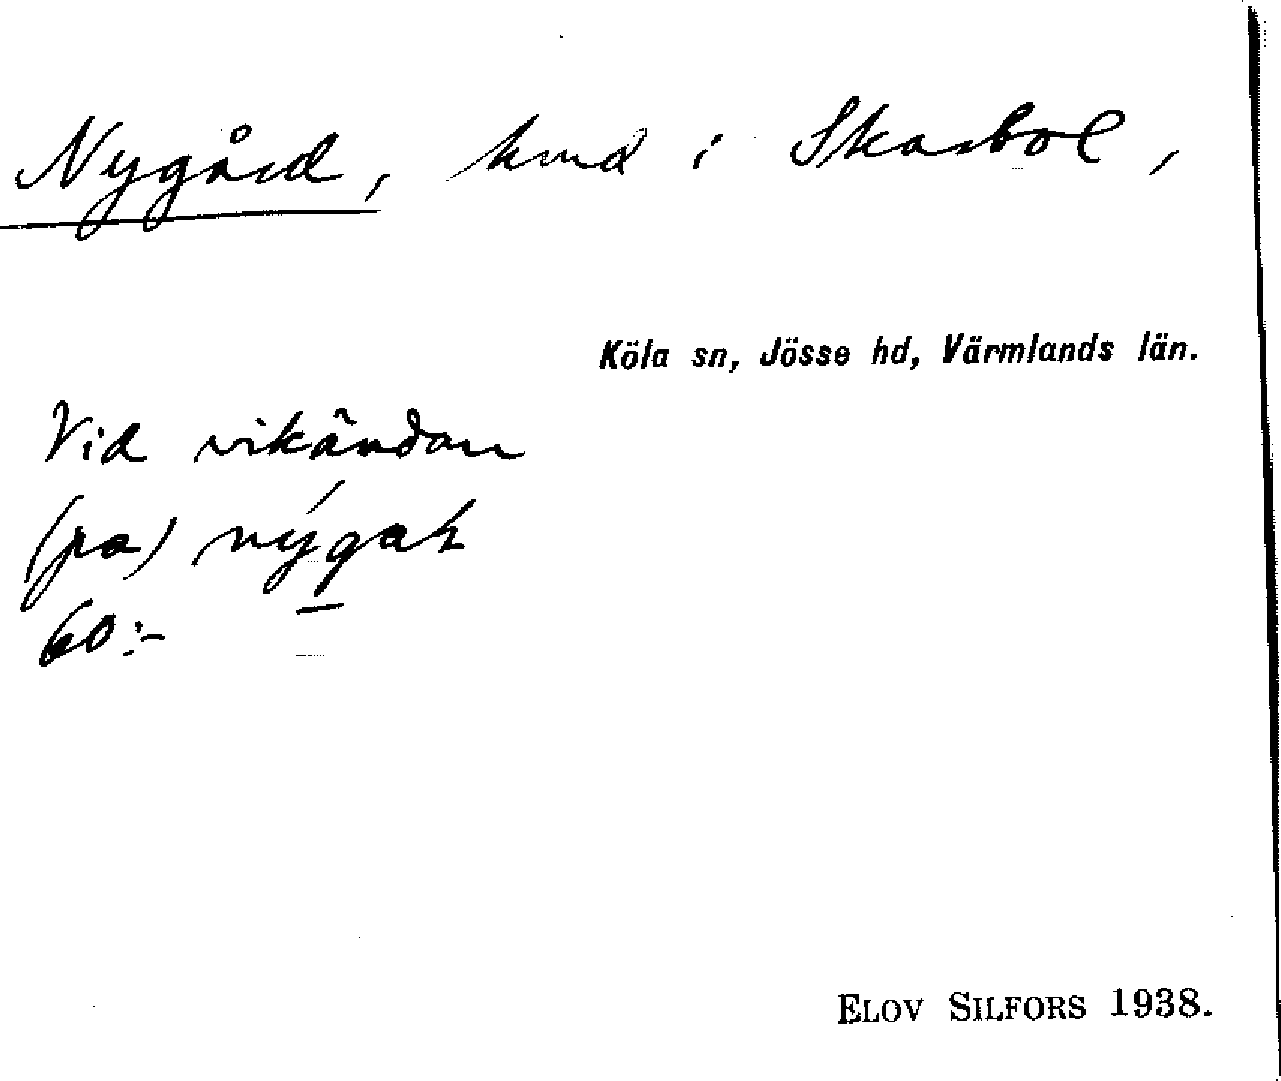 Nygård, hmd i Skasbol,
Köla sn, Jösse hd, Värmlands län.
Vid vikändan
(pa) nýgaɫ
60:-
ELOV SILFORS 1938.